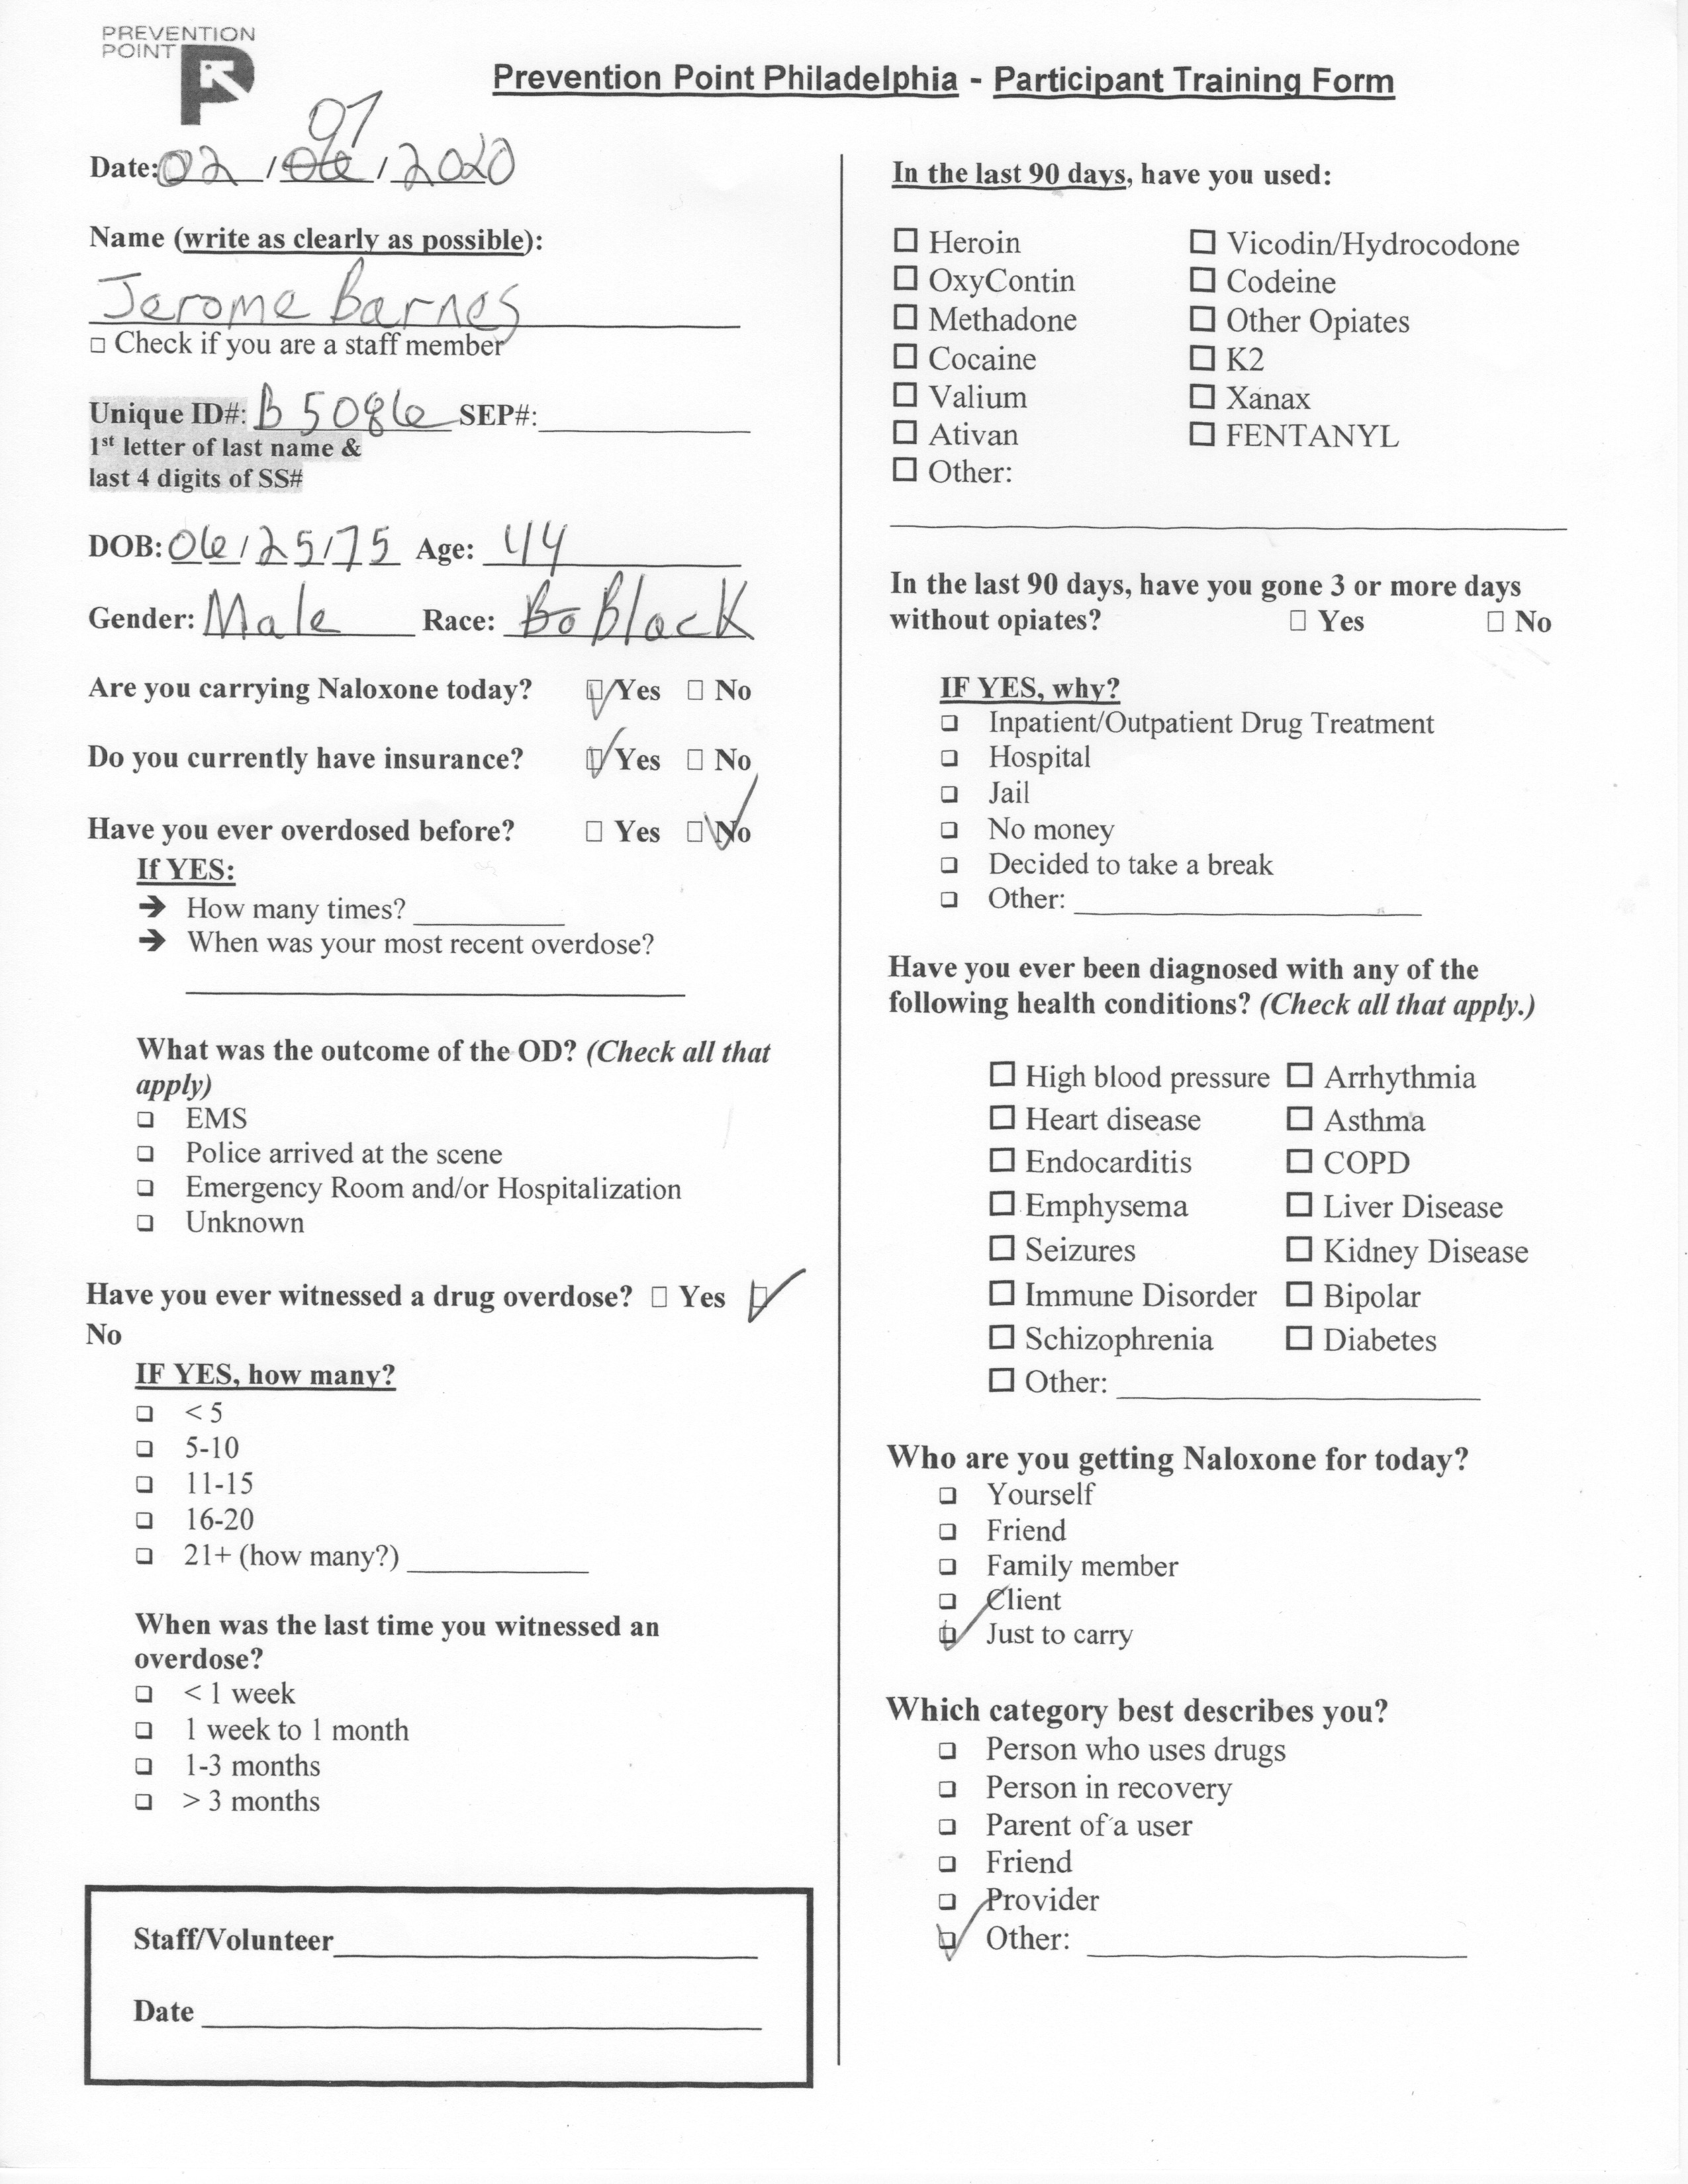 PREVENTION
POINT
Prevention Point Philadelphia - Participant Training Form
07
Date: 02 / 06 / 2020
Name (write as clearly as possible):
Jerome Barnes
☐ Check if you are a staff member
Unique ID#: B 5086 SEP#:
1st letter of last name &
last 4 digits of SS#
DOB: 06/25/75 Age: 44
Gender: Male Race: Bo Black
Are you carrying Naloxone today? ☑ Yes ☐ No
Do you currently have insurance? ☑ Yes ☐ No
Have you ever overdosed before? ☐ Yes ☑ No
If YES:
➔ How many times?
➔ When was your most recent overdose?
What was the outcome of the OD? (Check all that
apply)
❏ EMS
❏ Police arrived at the scene
❏ Emergency Room and/or Hospitalization
❏ Unknown
Have you ever witnessed a drug overdose? ☐ Yes ☑
No
IF YES, how many?
❏ < 5
❏ 5-10
❏ 11-15
❏ 16-20
❏ 21+ (how many?)
When was the last time you witnessed an
overdose?
❏ < 1 week
❏ 1 week to 1 month
❏ 1-3 months
❏ > 3 months
Staff/Volunteer
Date
In the last 90 days, have you used:
☐ Heroin ☐ Vicodin/Hydrocodone
☐ OxyContin ☐ Codeine
☐ Methadone ☐ Other Opiates
☐ Cocaine ☐ K2
☐ Valium ☐ Xanax
☐ Ativan ☐ FENTANYL
☐ Other:
In the last 90 days, have you gone 3 or more days
without opiates? ☐ Yes ☐ No
IF YES, why?
❏ Inpatient/Outpatient Drug Treatment
❏ Hospital
❏ Jail
❏ No money
❏ Decided to take a break
❏ Other:
Have you ever been diagnosed with any of the
following health conditions? (Check all that apply.)
☐ High blood pressure ☐ Arrhythmia
☐ Heart disease ☐ Asthma
☐ Endocarditis ☐ COPD
☐ Emphysema ☐ Liver Disease
☐ Seizures ☐ Kidney Disease
☐ Immune Disorder ☐ Bipolar
☐ Schizophrenia ☐ Diabetes
☐ Other:
Who are you getting Naloxone for today?
❏ Yourself
❏ Friend
❏ Family member
❏ Client
☑ Just to carry
Which category best describes you?
❏ Person who uses drugs
❏ Person in recovery
❏ Parent of a user
❏ Friend
❏ Provider
☑ Other: